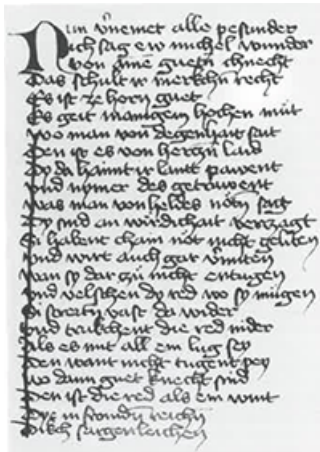 Nun vernemet alle pesunder
Ich sag ew michel wunder
Von aine guetn chnecht
Das schult ir merkchn recht
Es ist ze horn guet
Es geit manigen hochen mut
Wo man von degenhait sait
Den ist es von herczn laid
Dy da haimt ir lantt pawent
Und nymer des getrawent
Was man von heldes noten sagt
Dy sind an wirdichait verczagt
Si habent chain not nicht geliten
Und wirt auch gar vermiten
Wan sy dar zu nicht entugen
Und velschen dy red wo sy mugen
Si streitn vast da wider
Und truckchent die red nider
Als es mit all ein lug sey
Den want nicht tugent pey
Wo dann guet knecht sind
Den ist die red als ein wint
Dye in fromdn reichn
Dikch